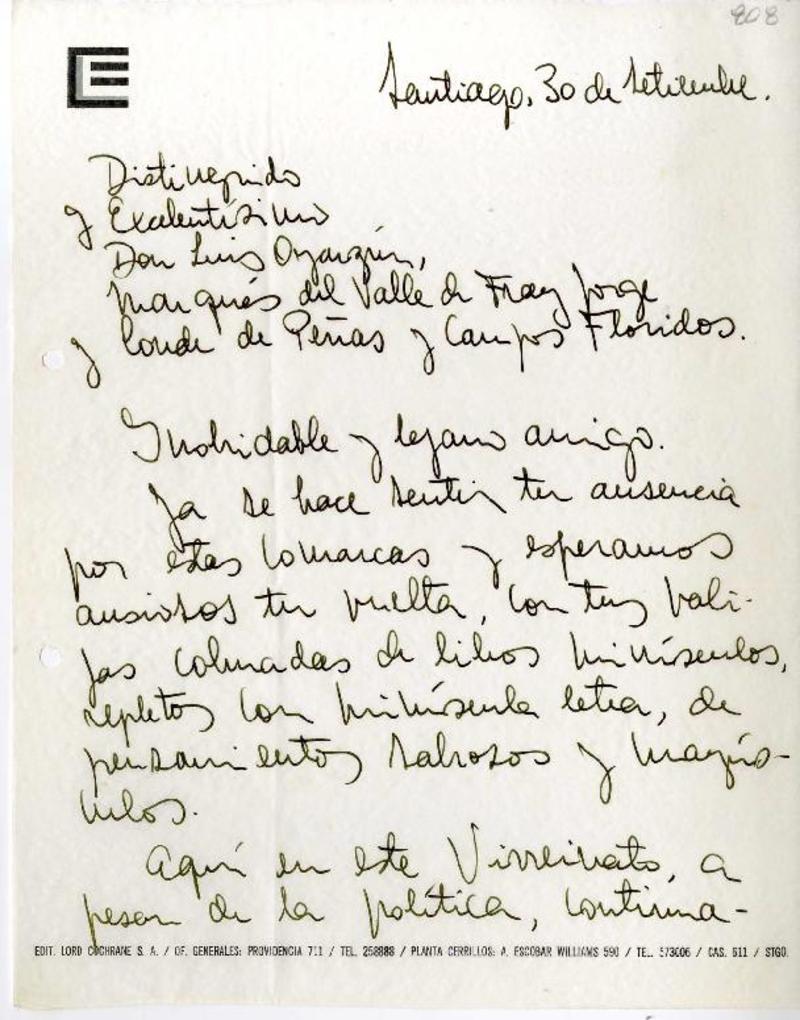 808
Santiago, 30 de Setiembre.
Distinguido
y Exelentísimo
Don Luis Oyarzún,
Marqués del Valle de Fray Jorge
y Conde de Peñas y Campos Floridos.
Inolvidable y lejano amigo.
Ya se hace sentir tu ausencia
por estas comarcas y esperamos
ansiosos tu vuelta, con tus vali-
jas colmadas de libros minúsculos,
repletos con minúscula letra, de
pensamientos sabrosos y mayús-
culos.
Aquí en este Virreinato, a
pesar de la política, continua-
EDIT. LORD COCHRANE S. A. / OF. GENERALES: PROVIDENCIA 711 / TEL. 258888 / PLANTA CERRILLOS: A. ESCOBAR WILLIAMS 590 / TEL. 573006 / CAS. 611 / STGO.